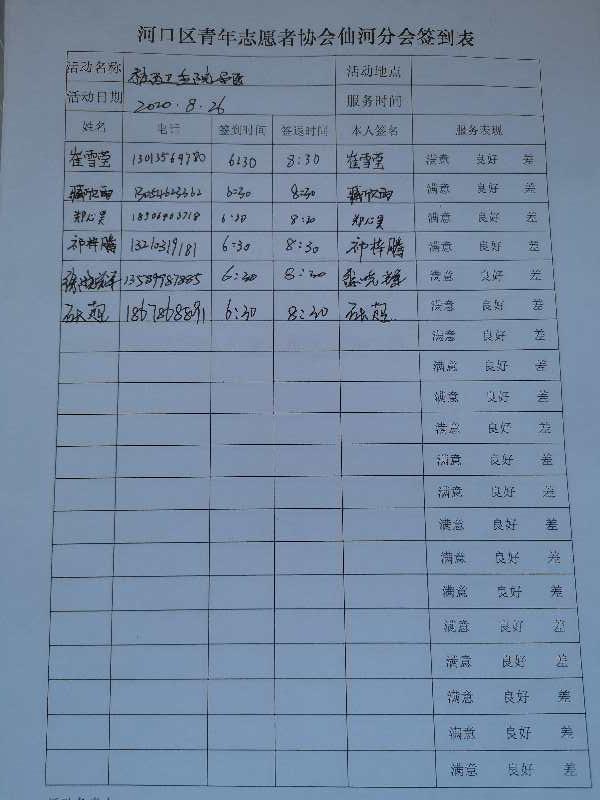 河口区青年志愿者协会仙河分会签到表
活动名称 活动地点
活动日期 2020.8.26 服务时间
姓名 电话 签到时间 签退时间 本人签名 服务表现
崔雪莹 13013569780 6:30 8:30 崔雪莹 满意 良好 差
臧欣雨 13054623362 6:30 8:30 臧欣雨 满意 良好 差
郑心昊 18906403718 6:30 8:30 郑心昊 满意 良好 差
祁梓腾 13210319181 6:30 8:30 祁梓腾 满意 良好 差
13589987885 6:30 8:30 满意 良好 差
石超 1867868891 6:30 8:30 石超 满意 良好 差
满意 良好 差
满意 良好 差
满意 良好 差
满意 良好 差
满意 良好 差
满意 良好 差
满意 良好 差
满意 良好 差
满意 良好 差
满意 良好 差
满意 良好 差
满意 良好 差
满意 良好 差
满意 良好 差